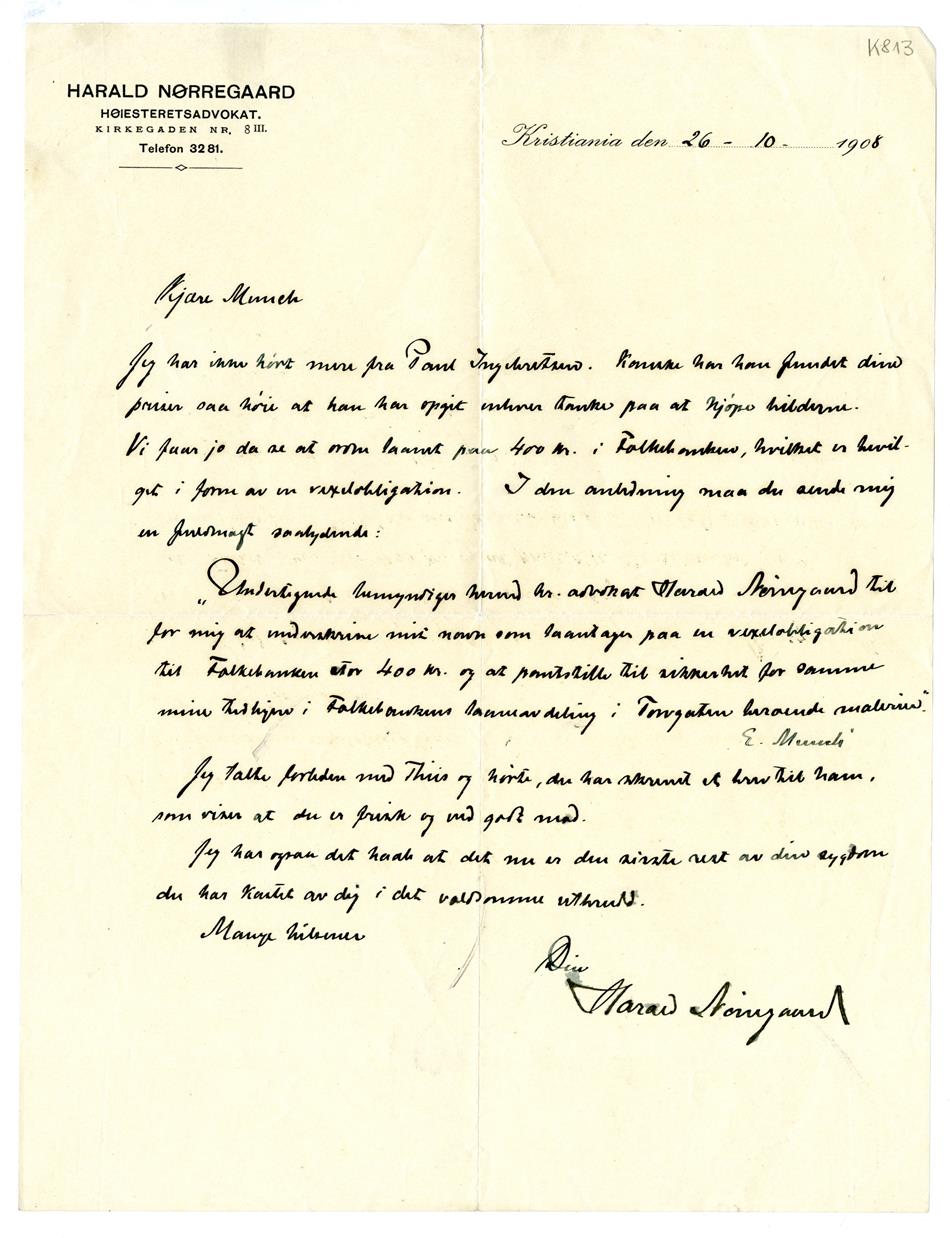 K813
HARALD NØRREGAARD
HØIESTERETSADVOKAT.
KIRKEGADEN NR. 8 III.
Telefon 3281.
Kristiania den 26 - 10 - 1908
Kjære Munch
Jeg har ikke hørt mere fra Paul Ingebretsen. Kanske har han fundet dine
priser saa høie at han har opgit enhver tanke paa at kjøpe billederne.
Vi faar jo da se at ordne laanet paa 400 kr. i Folkebanken, hvilket er bevil-
get i form av en vexelobligation. I den anledning maa du sende mig
en fuldmagt saalydende:
„Undertegnede bemyndiger herved hr. advokat Harald Nørregaard til
for mig at underskrive mit navn som laantager paa en vexelobligation
til Folkebanken stor 400 kr. og at pantstille til sikkerhet for samme
mine tidligere i Folkebankens laaneavdeling i Torvgaten beroende malerier."
E. Munch
Jeg talte forleden med Thiis og hørte, du har skrevet et brev til ham,
som viser at du er frisk og ved godt mod.
Jeg har ogsaa det haab at det nu er den sidste rest av din sygdom
du har kastet av dig i det voldsomme utbrudd.
Mange hilsener
Din
Harald Nørregaard